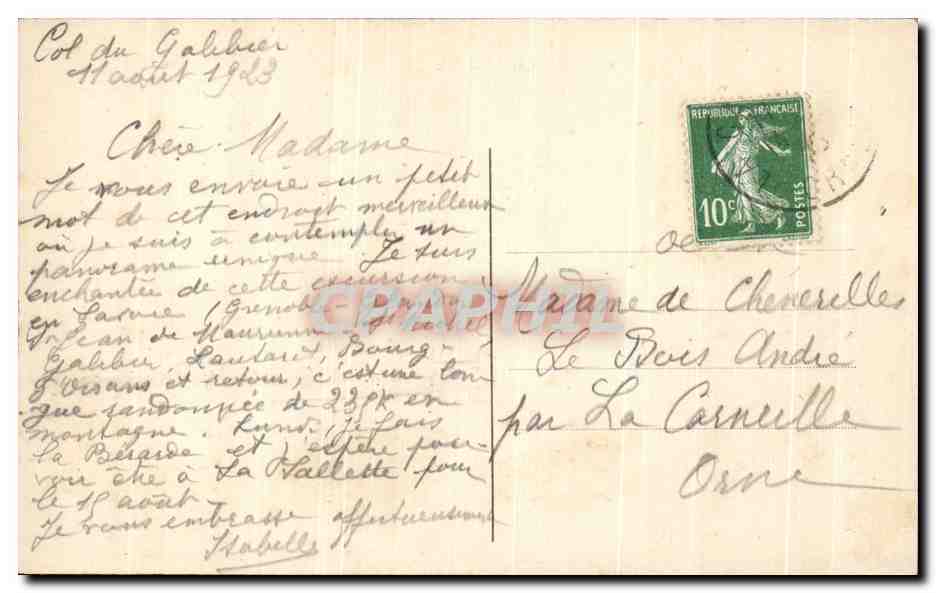 Col du Galibier
11 août 1923
Chère Madame
Je vous envoie un petit
mot de cet endroit merveilleux
où je suis à contempler un
panorama unique. Je suis
enchantée de cette excursion
en Savoie (Grenoble,
St Jean de Maurienne,
Galibier, Lautaret, Bourg-
d'Oisans et retour, c'est une lon-
gue randonnée de 235k en
montagne. Lundi, je fais
la Bérarde et j'espère pou-
voir être à La Sallette pour
le 15 août.
Je vous embrasse affectueusement
Isabelle
REPUBLIQUE FRANÇAISE
10c
POSTES
Madame de Chenerilles
Le Bois André
par La Carneille
Orne
CPAPHIL